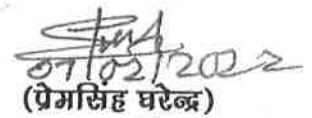 07/02/2022
(प्रेमसिंह घरेन्द्र)